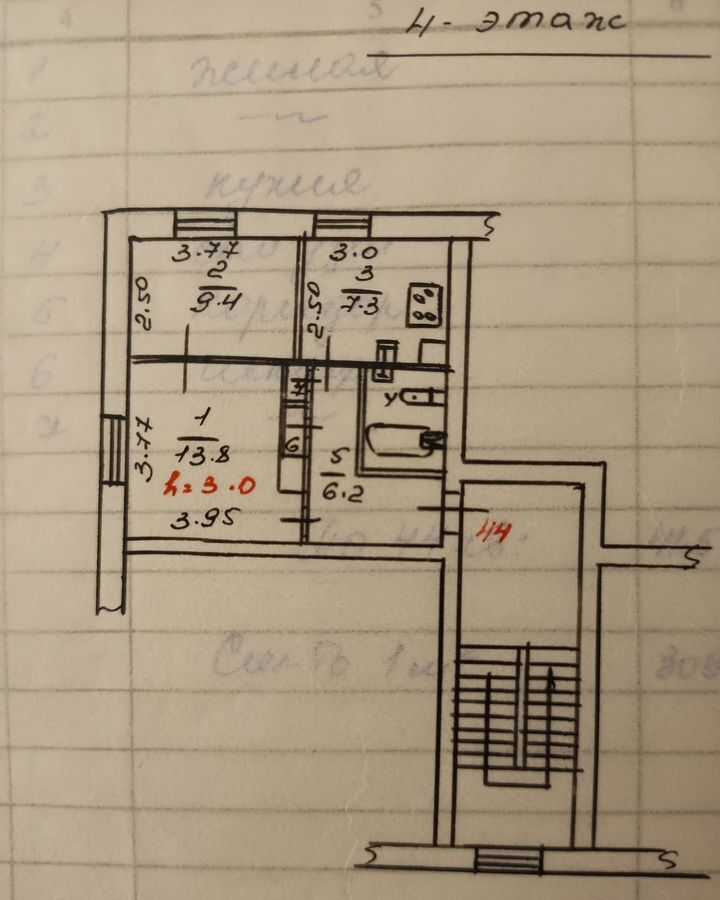 4- этаж
3.77
2
9.4
2.50
3.0
3
7.3
2.50
1
13.8
h=3.0
3.95
3.77
7
6
5
6.2
У
44
1
жилая
2
—"—
3
кухня
4
5
коридор
6
7